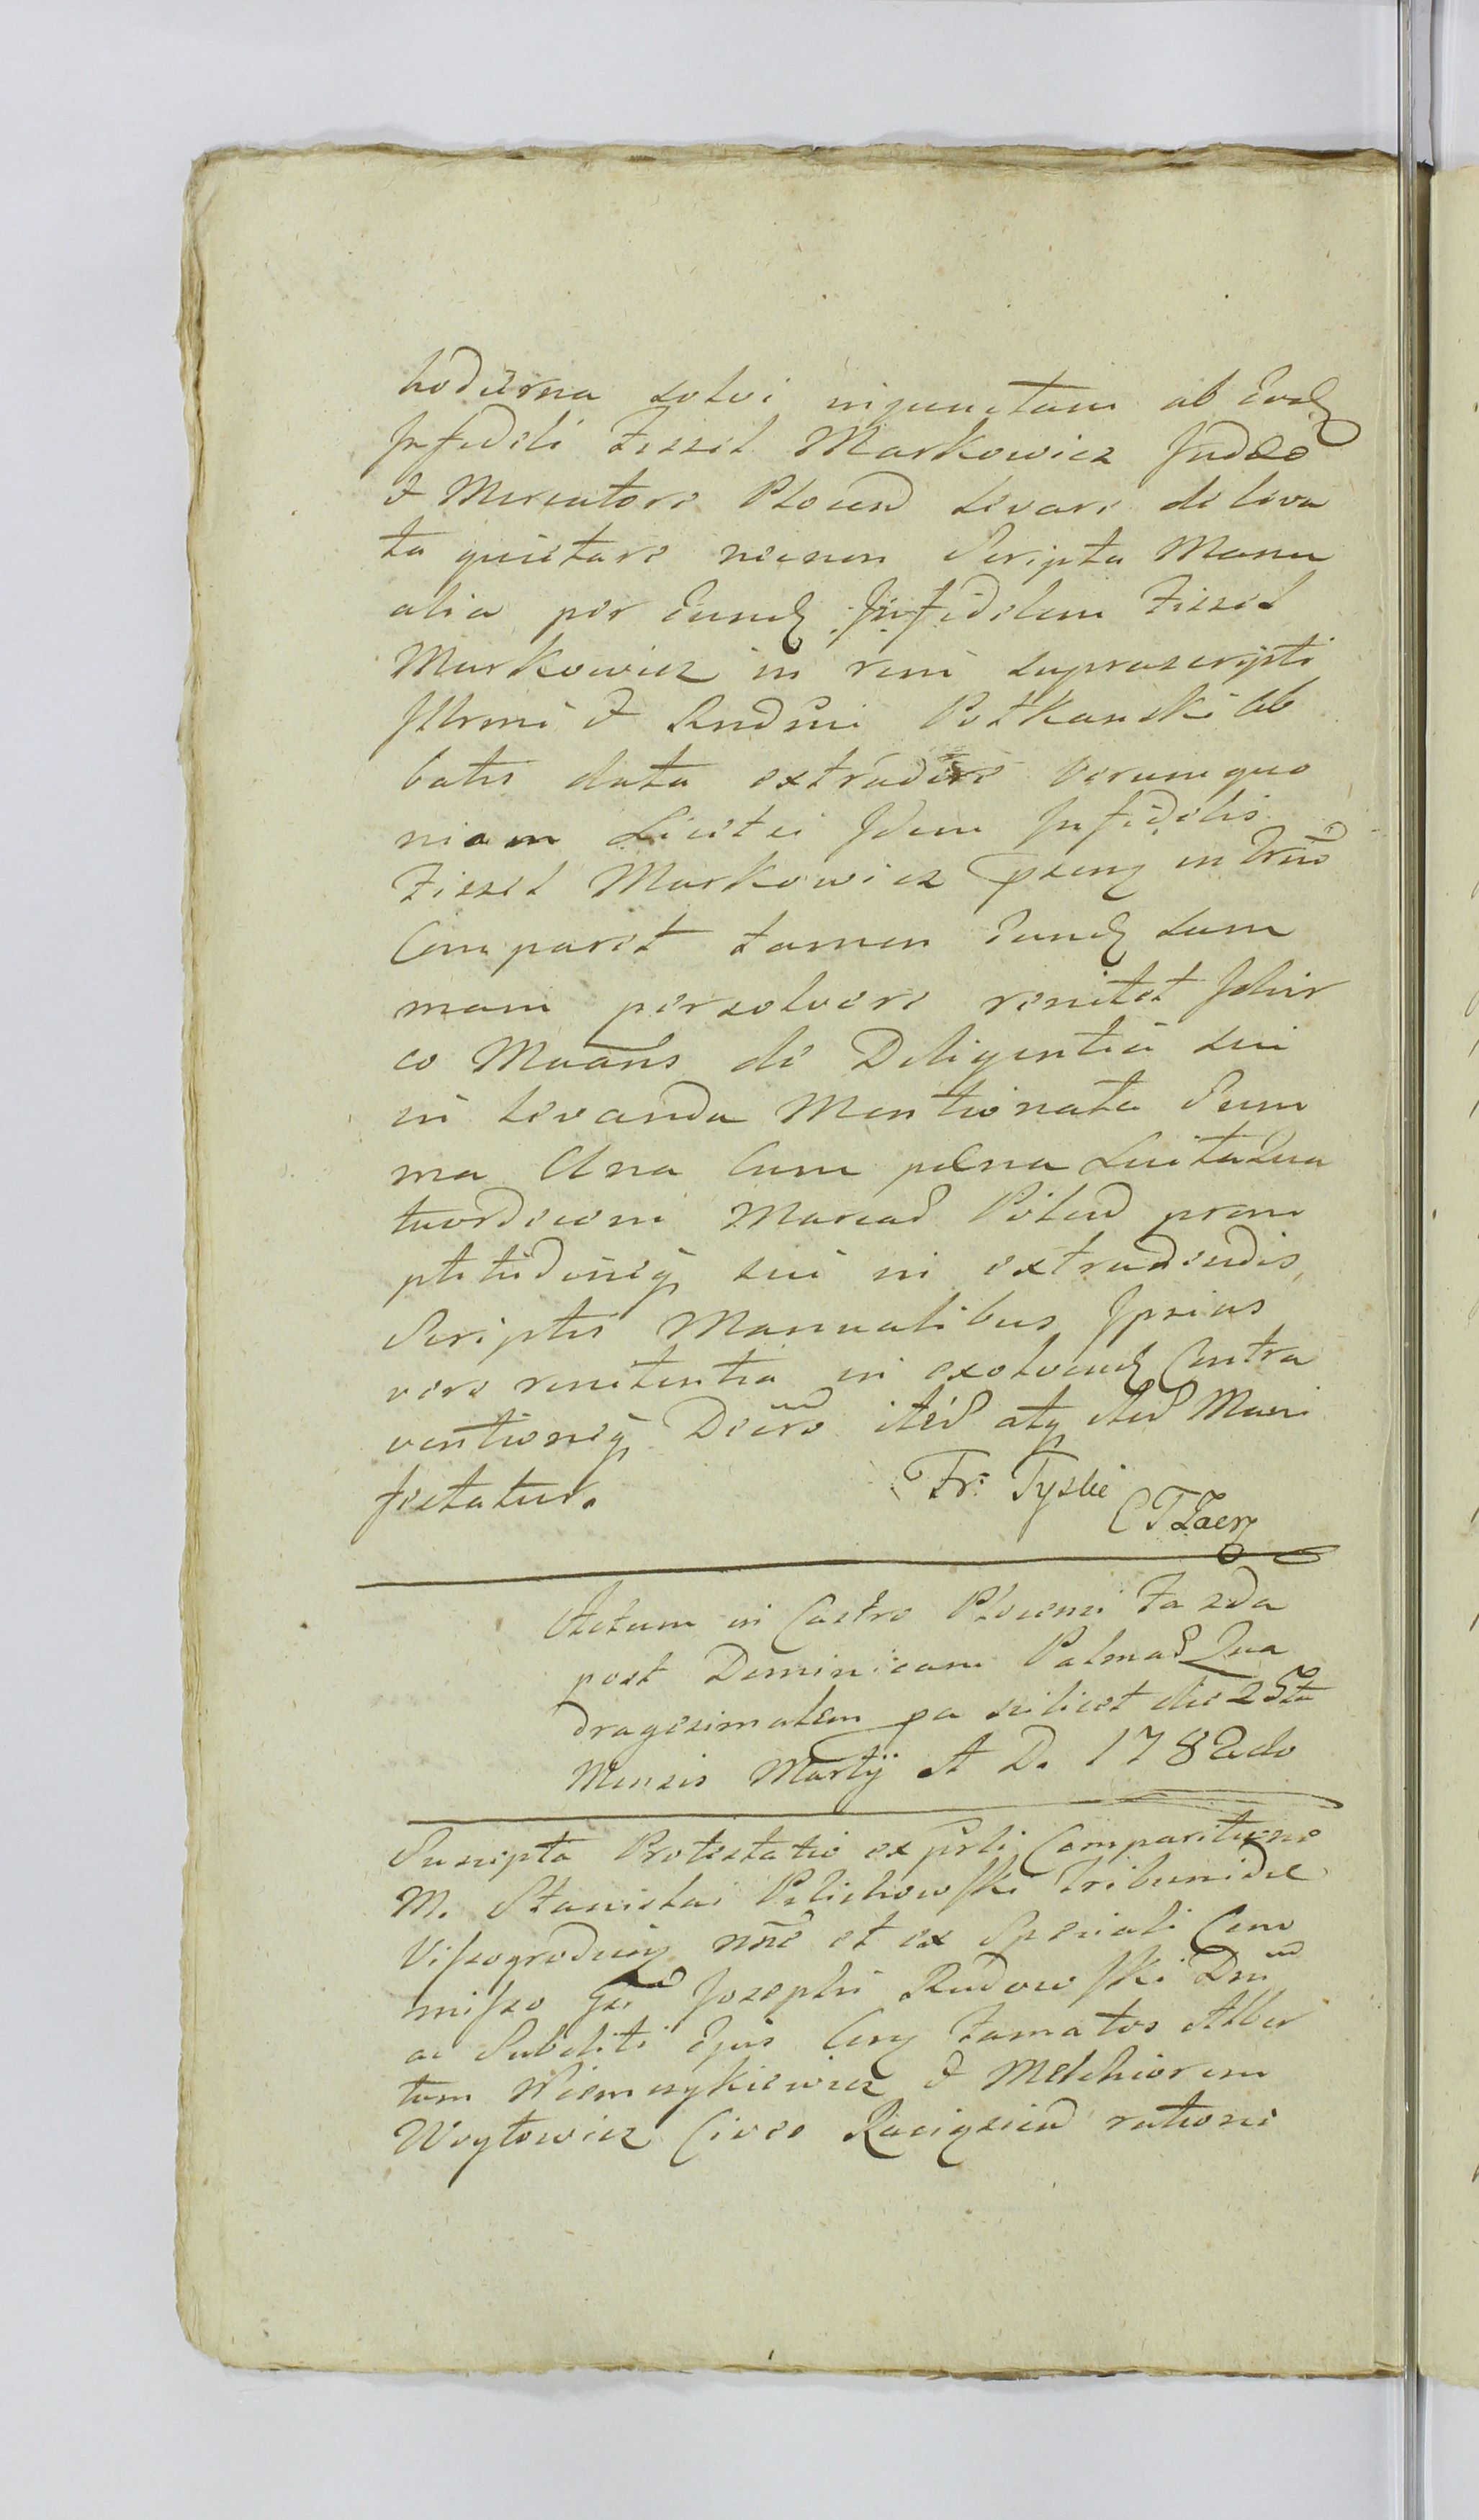 hodierna solvi injunctam ab Eod
Infideli Fiszel Markowicz Judæo
& Mercatore Plocen levare de leva
ta quietare necnon Scripta Manu
alia per Eund Infidelem Fiszel
Markowicz in rem suprascripti
Illrmi & Rndmi Potkanski Ab
batis data extradere verum quo
niam Licet ei Idem Infidelis
Fiszel Markowicz in Trno
Comparet tamen Eund Sum
mam persolvere renitet Idcir
co Moans de Diligentia sui
in levanda Mentionata Sum
ma Una Cum pæna Luita Qua
tuordecem Marcas Polcd prom
ptitudineq sui in extradendis
Scriptis Manualibus Ipsius
vero renitentia in exolvend Contra
ventioneq Decro itéd atq Mani
festatur.
Fr: Tyslie
Actum in Castro Plocensi Fa 2da
post Dominicam Palmas Qua
dragesimalem pa scilicet die 25ta
Mensis Martij A D. 1782do
Suscipta Protestatio ex psrli Comparitione
M. Stanislai Pelichowski Tribunidæ
Vissogrodien nne et ex Speciali Com
misso Gsi Josephi Rudowski Dni
ac Subditi Ejus Famatos Alber
tum Niemczykiewicz & Melchiorem
Woytowicz Cives Raciąscien ratione